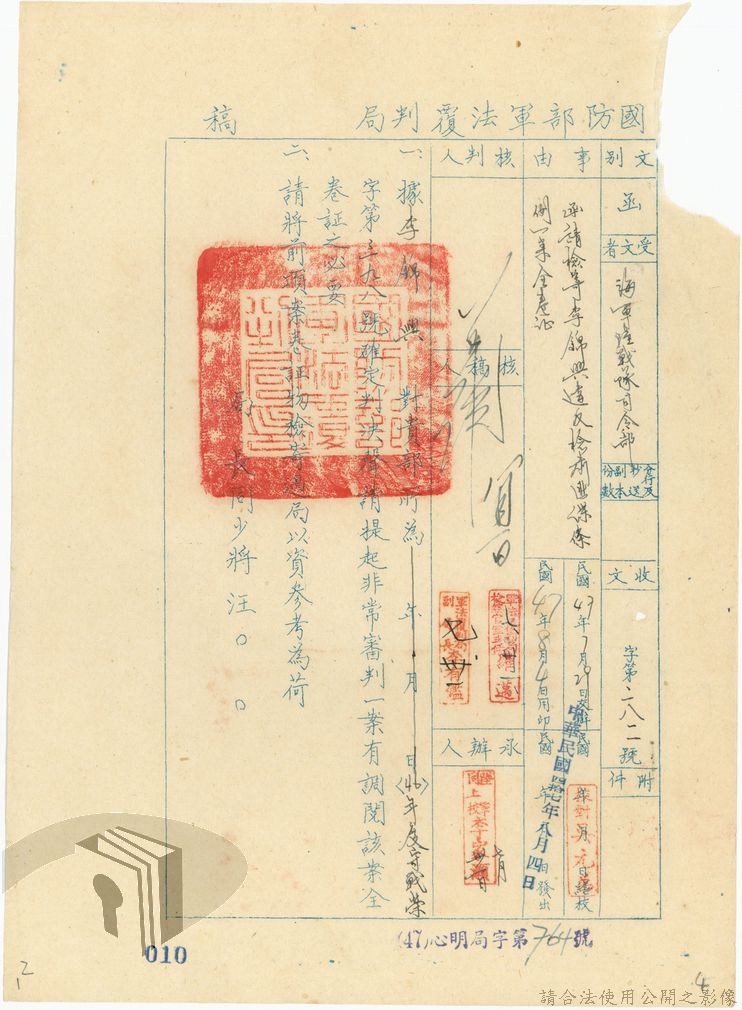 國防部軍法覆判局 稿
文別
函
受文者
海軍陸戰隊司令部
合行及抄送副本份數
收文
字第二八二號
附件
事由
函請檢寄李錦興違反檢肅匪諜條例一案全卷證
民國47年7月29日
民國47年8月4日用印
中華民國四十七年八月四日
日發出
核判人
核稿人
承辦人
一、據李錦興對貴部所為 年 月 日(46)年度
字第三九八號確定判決聲請提起非常審判一案有調閱該案全
卷証之必要
二、請將前項案卷証物檢寄過局以資參考為荷
局長周少將汪○○
(47)心明局字第764號
010
2
1
4
請合法使用公開之影像